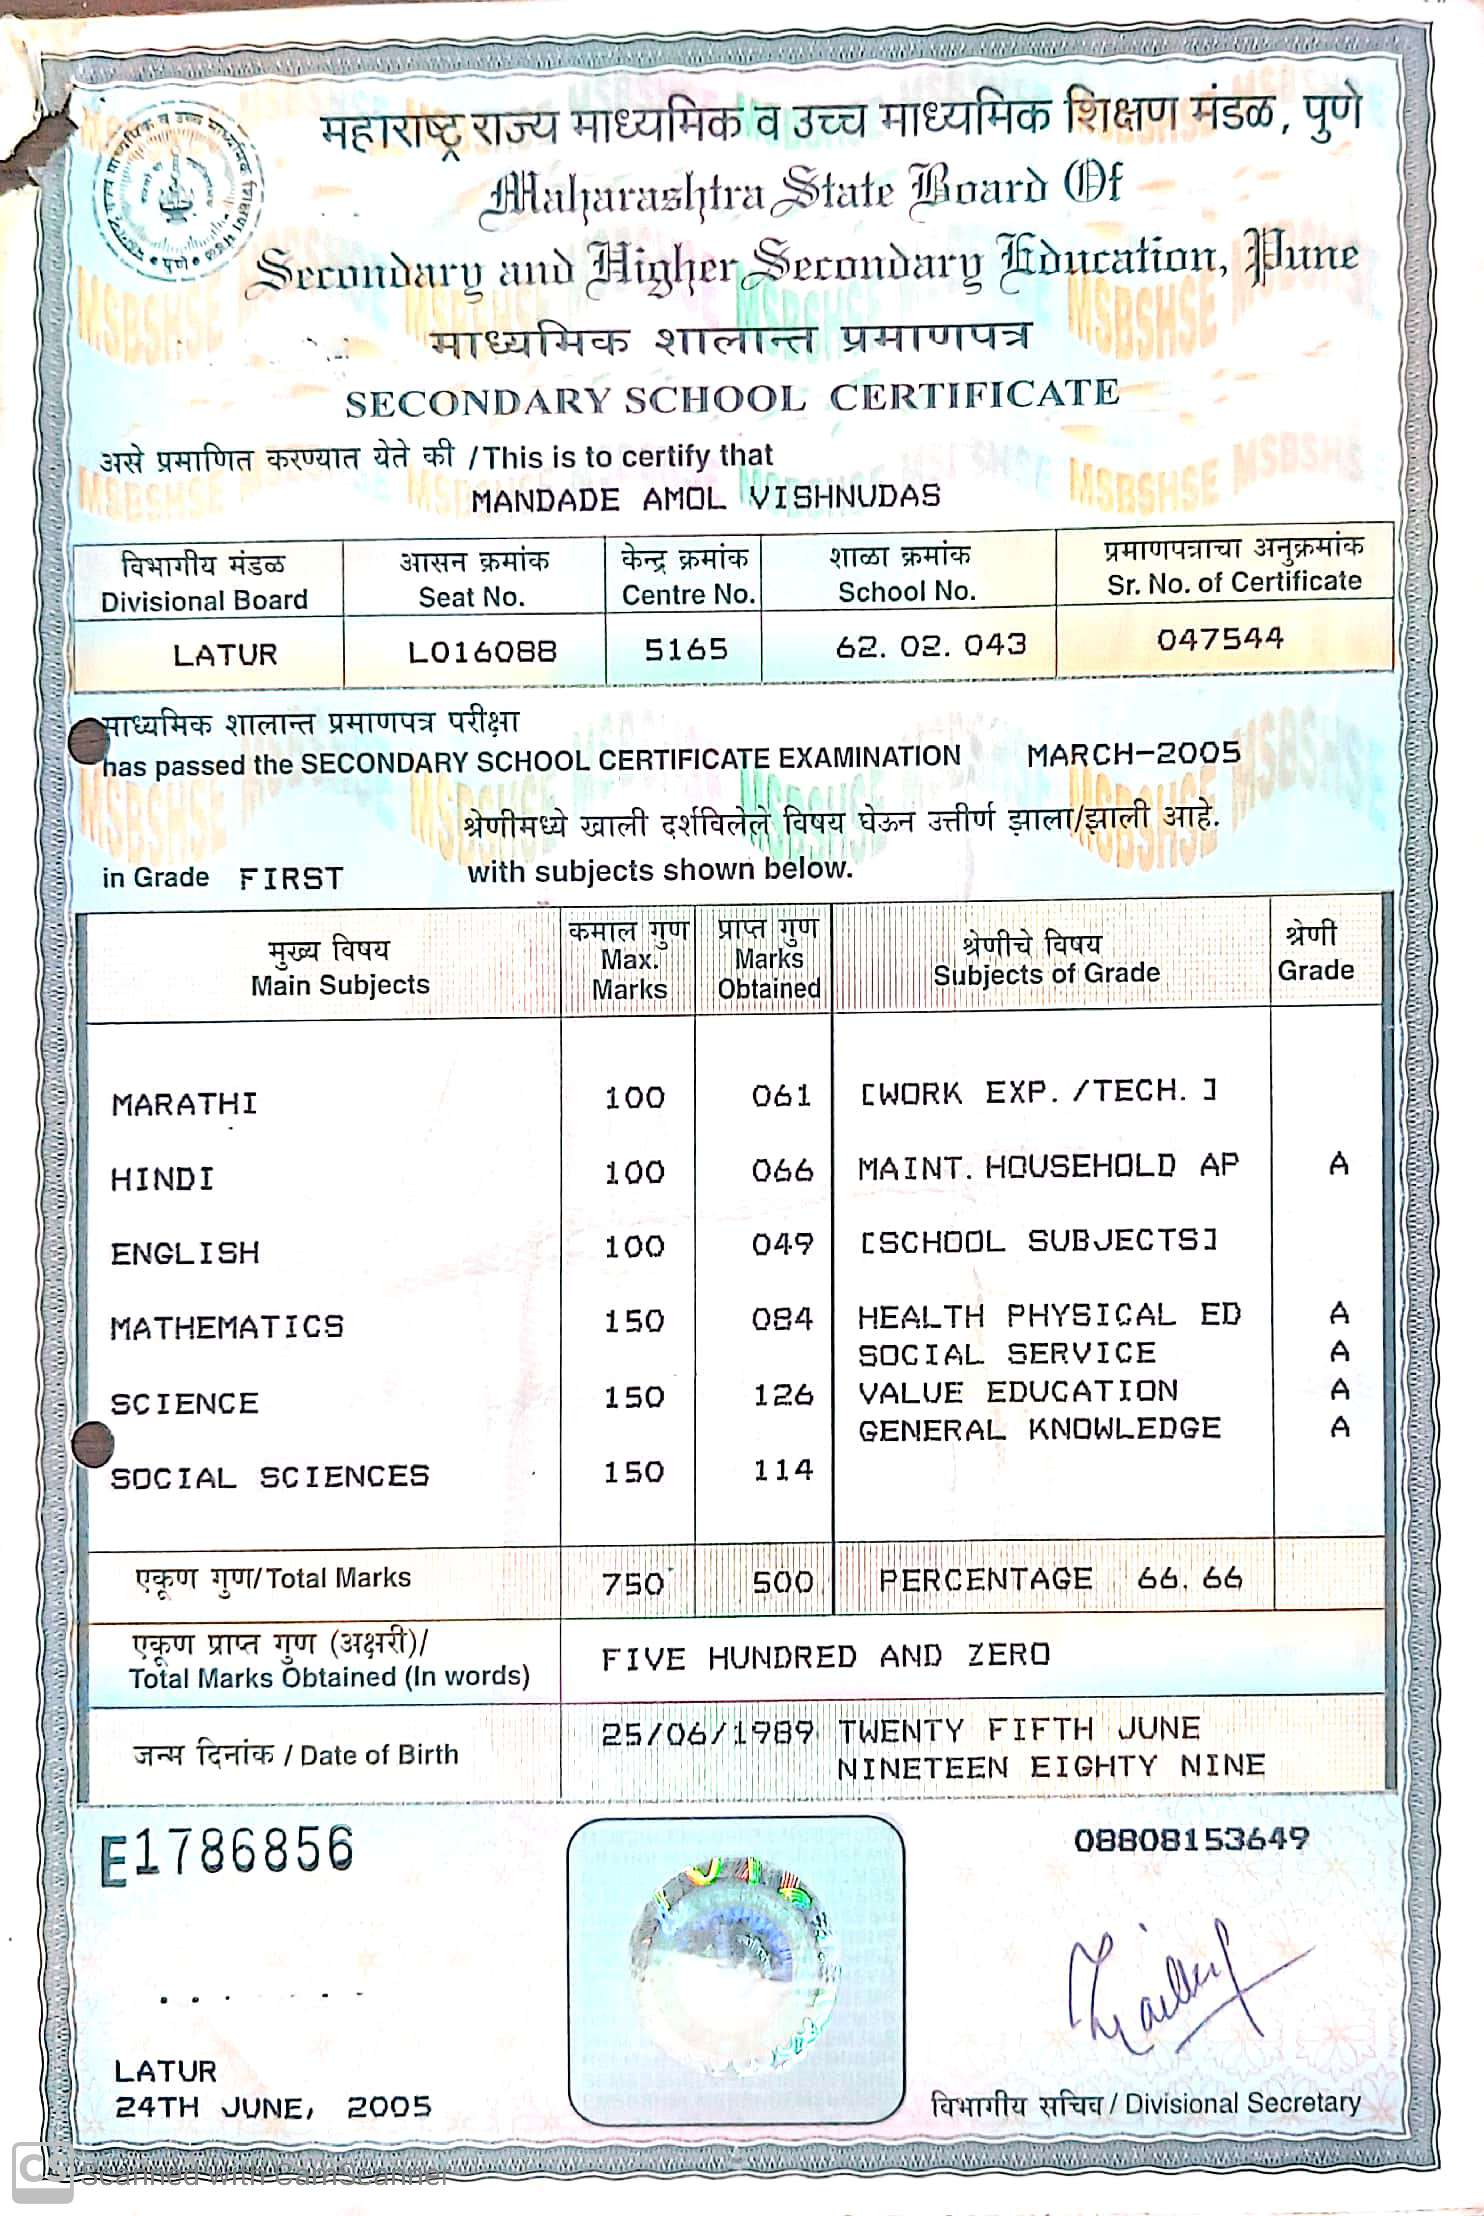 महाराष्ट्र राज्य माध्यमिक व उच्च माध्यमिक शिक्षण मंडळ, पुणे
Maharashtra State Board Of
Secondary and Higher Secondary Education, Pune
माध्यमिक शालान्त प्रमाणपत्र
SECONDARY SCHOOL CERTIFICATE
असे प्रमाणित करण्यात येते की / This is to certify that
MANDADE AMOL VISHNUDAS
विभागीय मंडळ आसन क्रमांक केन्द्र क्रमांक शाळा क्रमांक प्रमाणपत्राचा अनुक्रमांक
Divisional Board Seat No. Centre No. School No. Sr. No. of Certificate
LATUR L016088 5165 62. 02. 043 047544
माध्यमिक शालान्त प्रमाणपत्र परीक्षा
has passed the SECONDARY SCHOOL CERTIFICATE EXAMINATION MARCH-2005
श्रेणीमध्ये खाली दर्शविलेले विषय घेऊन उत्तीर्ण झाला/झाली आहे.
in Grade FIRST with subjects shown below.
मुख्य विषय कमाल गुण प्राप्त गुण श्रेणीचे विषय श्रेणी
Main Subjects Max. Marks Marks Obtained Subjects of Grade Grade
MARATHI 100 061 [WORK EXP. /TECH. ]
HINDI 100 066 MAINT. HOUSEHOLD AP A
ENGLISH 100 049 [SCHOOL SUBJECTS]
MATHEMATICS 150 084 HEALTH PHYSICAL ED A
SOCIAL SERVICE A
SCIENCE 150 126 VALUE EDUCATION A
GENERAL KNOWLEDGE A
SOCIAL SCIENCES 150 114
एकूण गुण/Total Marks 750 500 PERCENTAGE 66. 66
एकूण प्राप्त गुण (अक्षरी)/
Total Marks Obtained (In words) FIVE HUNDRED AND ZERO
जन्म दिनांक / Date of Birth 25/06/1989 TWENTY FIFTH JUNE
NINETEEN EIGHTY NINE
E1786856
08808153649
LATUR
24TH JUNE, 2005
विभागीय सचिव / Divisional Secretary
CS Scanned with CamScanner